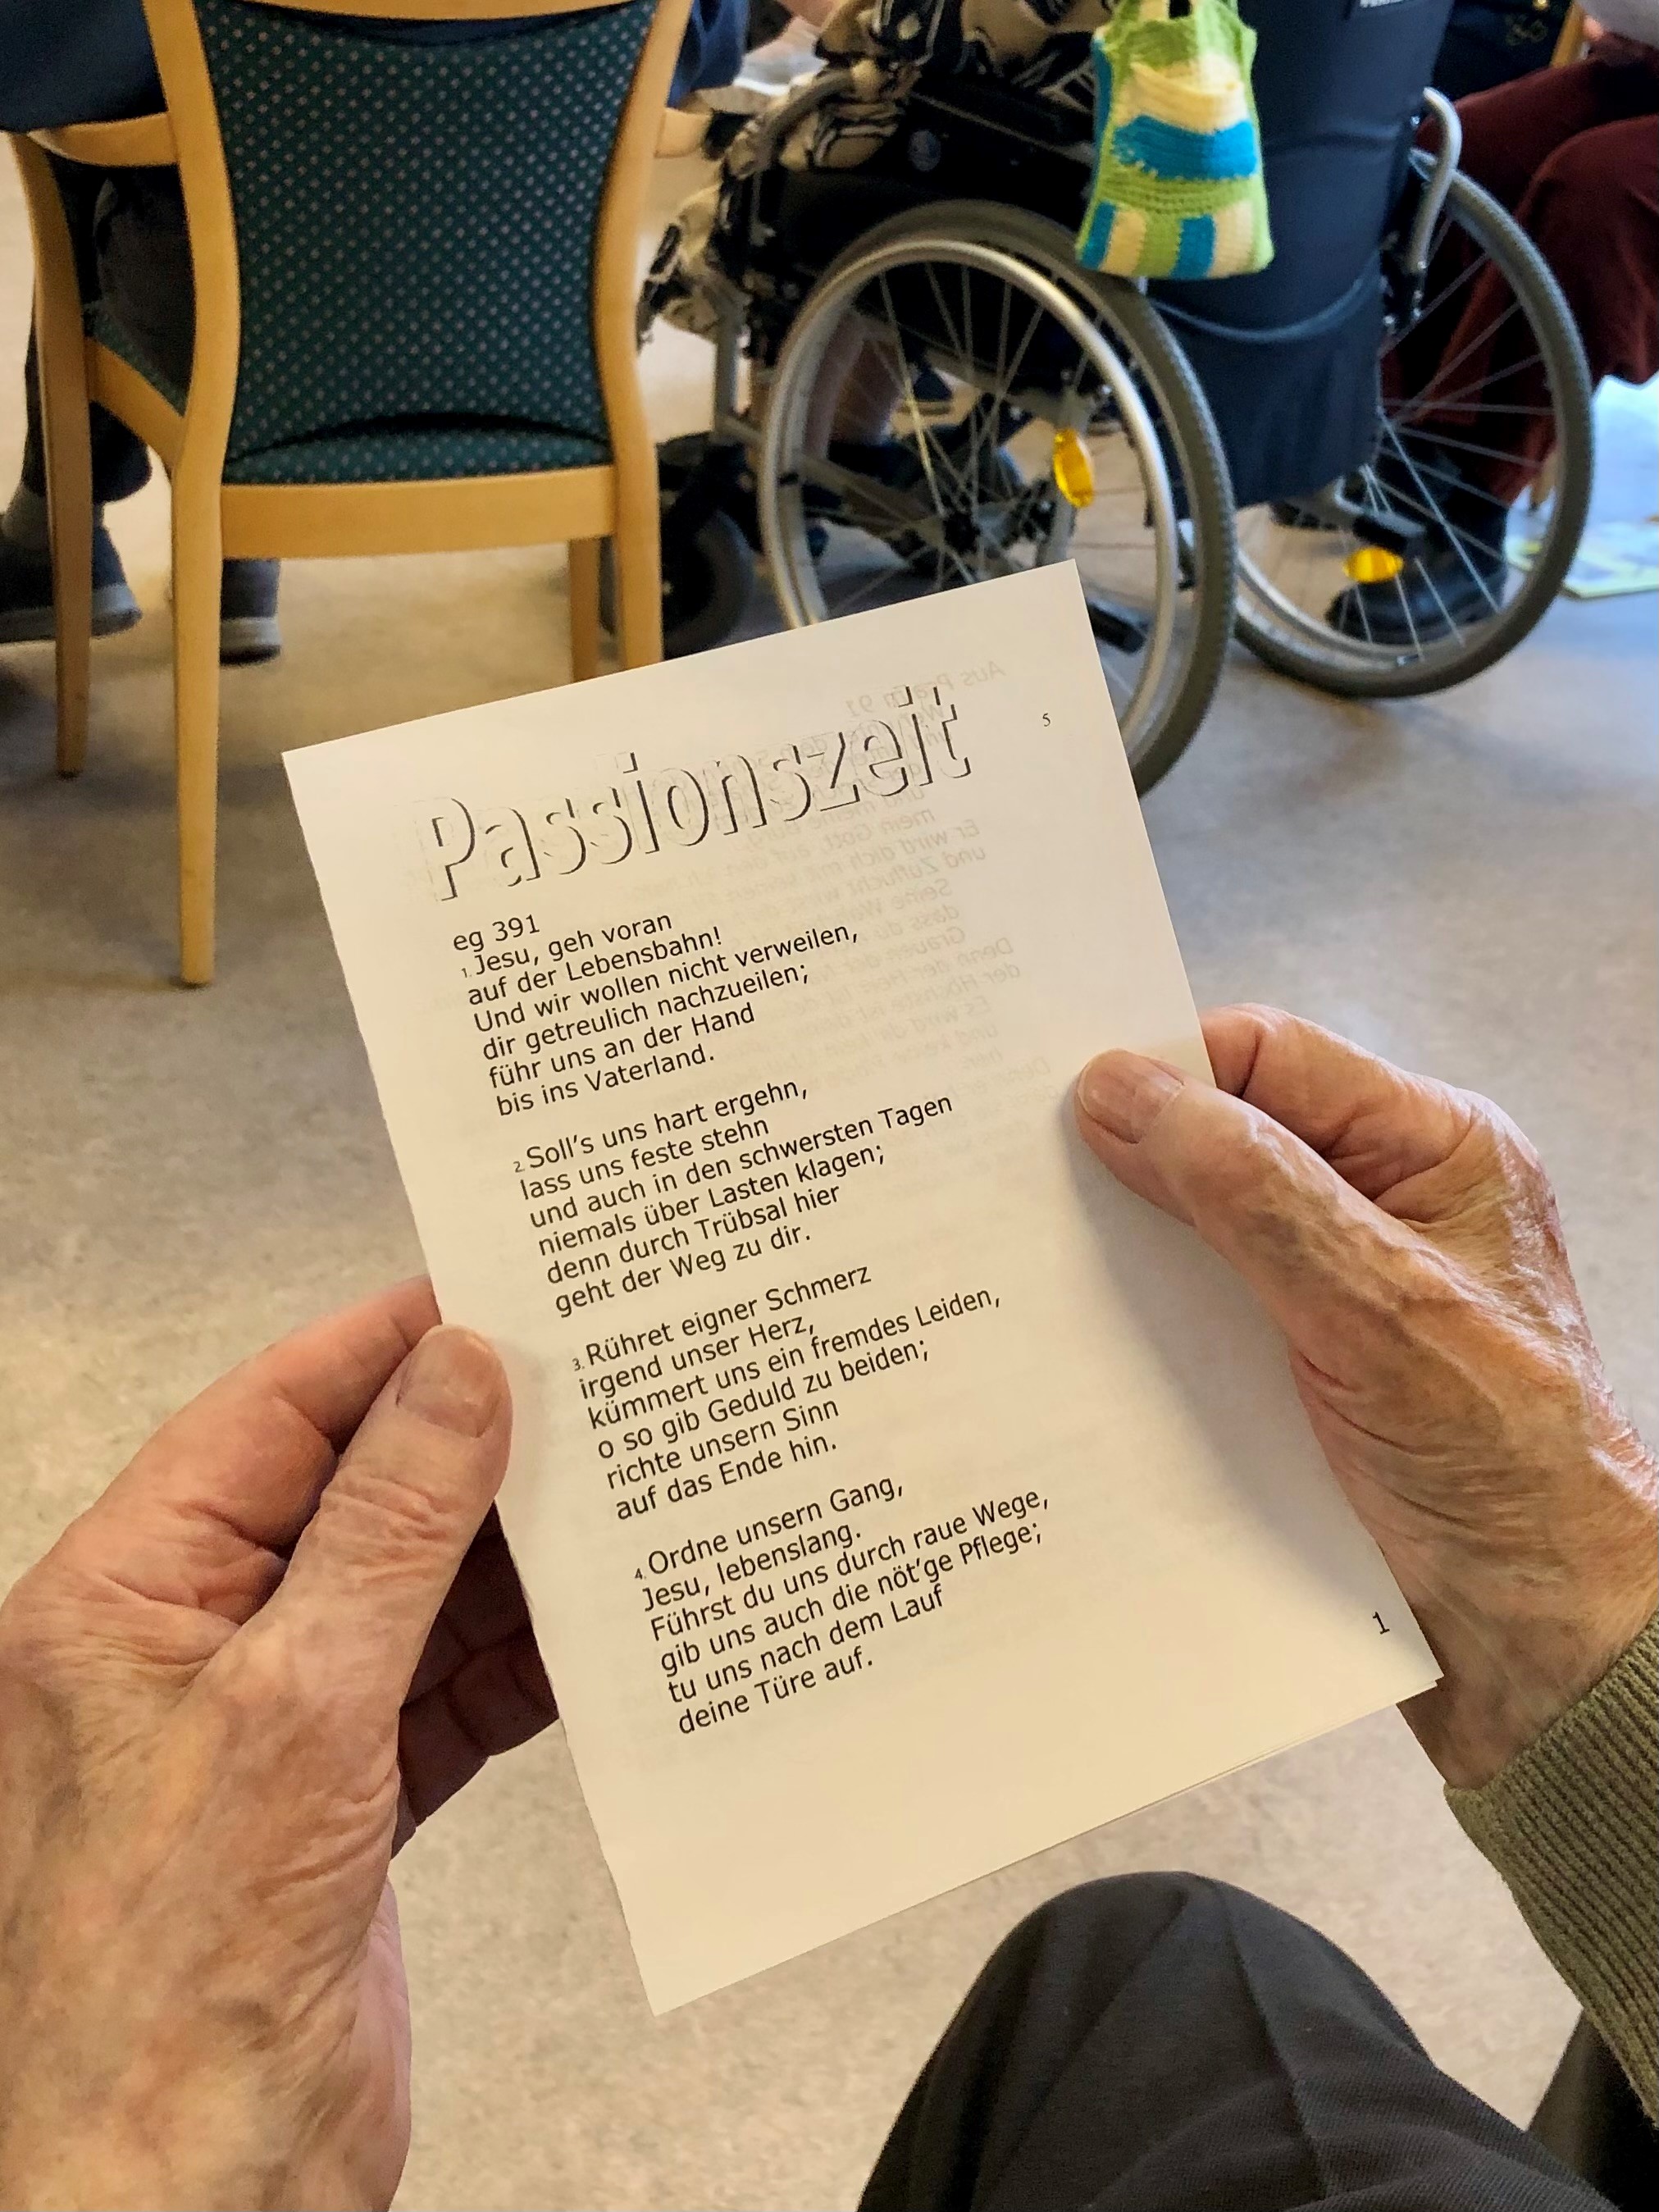 5
Passionszeit
eg 391
1. Jesu, geh voran
auf der Lebensbahn!
Und wir wollen nicht verweilen,
dir getreulich nachzueilen;
führ uns an der Hand
bis ins Vaterland.
2. Soll's uns hart ergehn,
lass uns feste stehn
und auch in den schwersten Tagen
niemals über Lasten klagen;
denn durch Trübsal hier
geht der Weg zu dir.
3. Rühret eigner Schmerz
irgend unser Herz,
kümmert uns ein fremdes Leiden,
o so gib Geduld zu beiden;
richte unsern Sinn
auf das Ende hin.
4. Ordne unsern Gang,
Jesu, lebenslang.
Führst du uns durch raue Wege,
gib uns auch die nöt'ge Pflege;
tu uns nach dem Lauf
deine Türe auf.
1